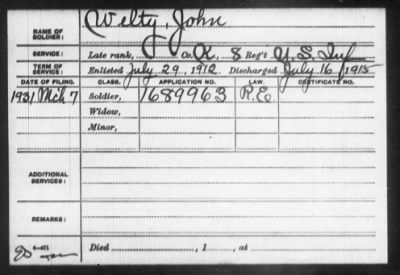 NAME OF SOLDIER: Welty, John
SERVICE: Late rank, Co. A, 8 Reg't U.S. Inf
TERM OF SERVICE: Enlisted July 29, 1912, Discharged July 16, 1915
DATE OF FILING. CLASS. APPLICATION NO. LAW. CERTIFICATE NO.
1931 Mch 7 Soldier, 1689963 R.E.
Widow,
Minor,
ADDITIONAL SERVICES:
REMARKS:
Died , 1 , at